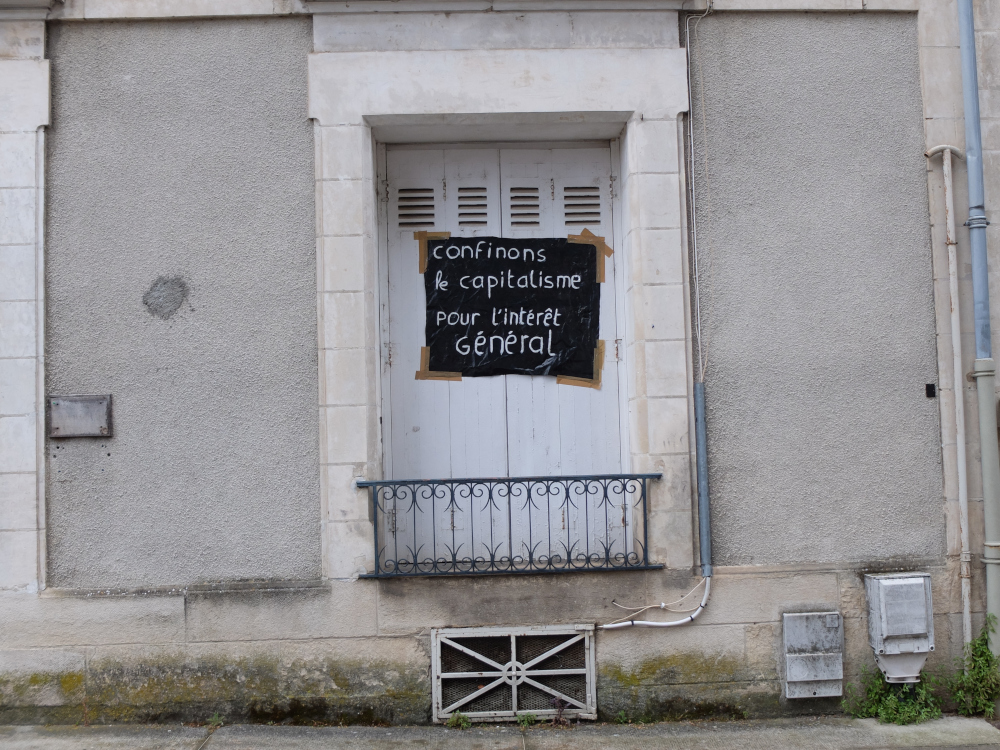 confinons
le capitalisme
pour l'intérêt
Général